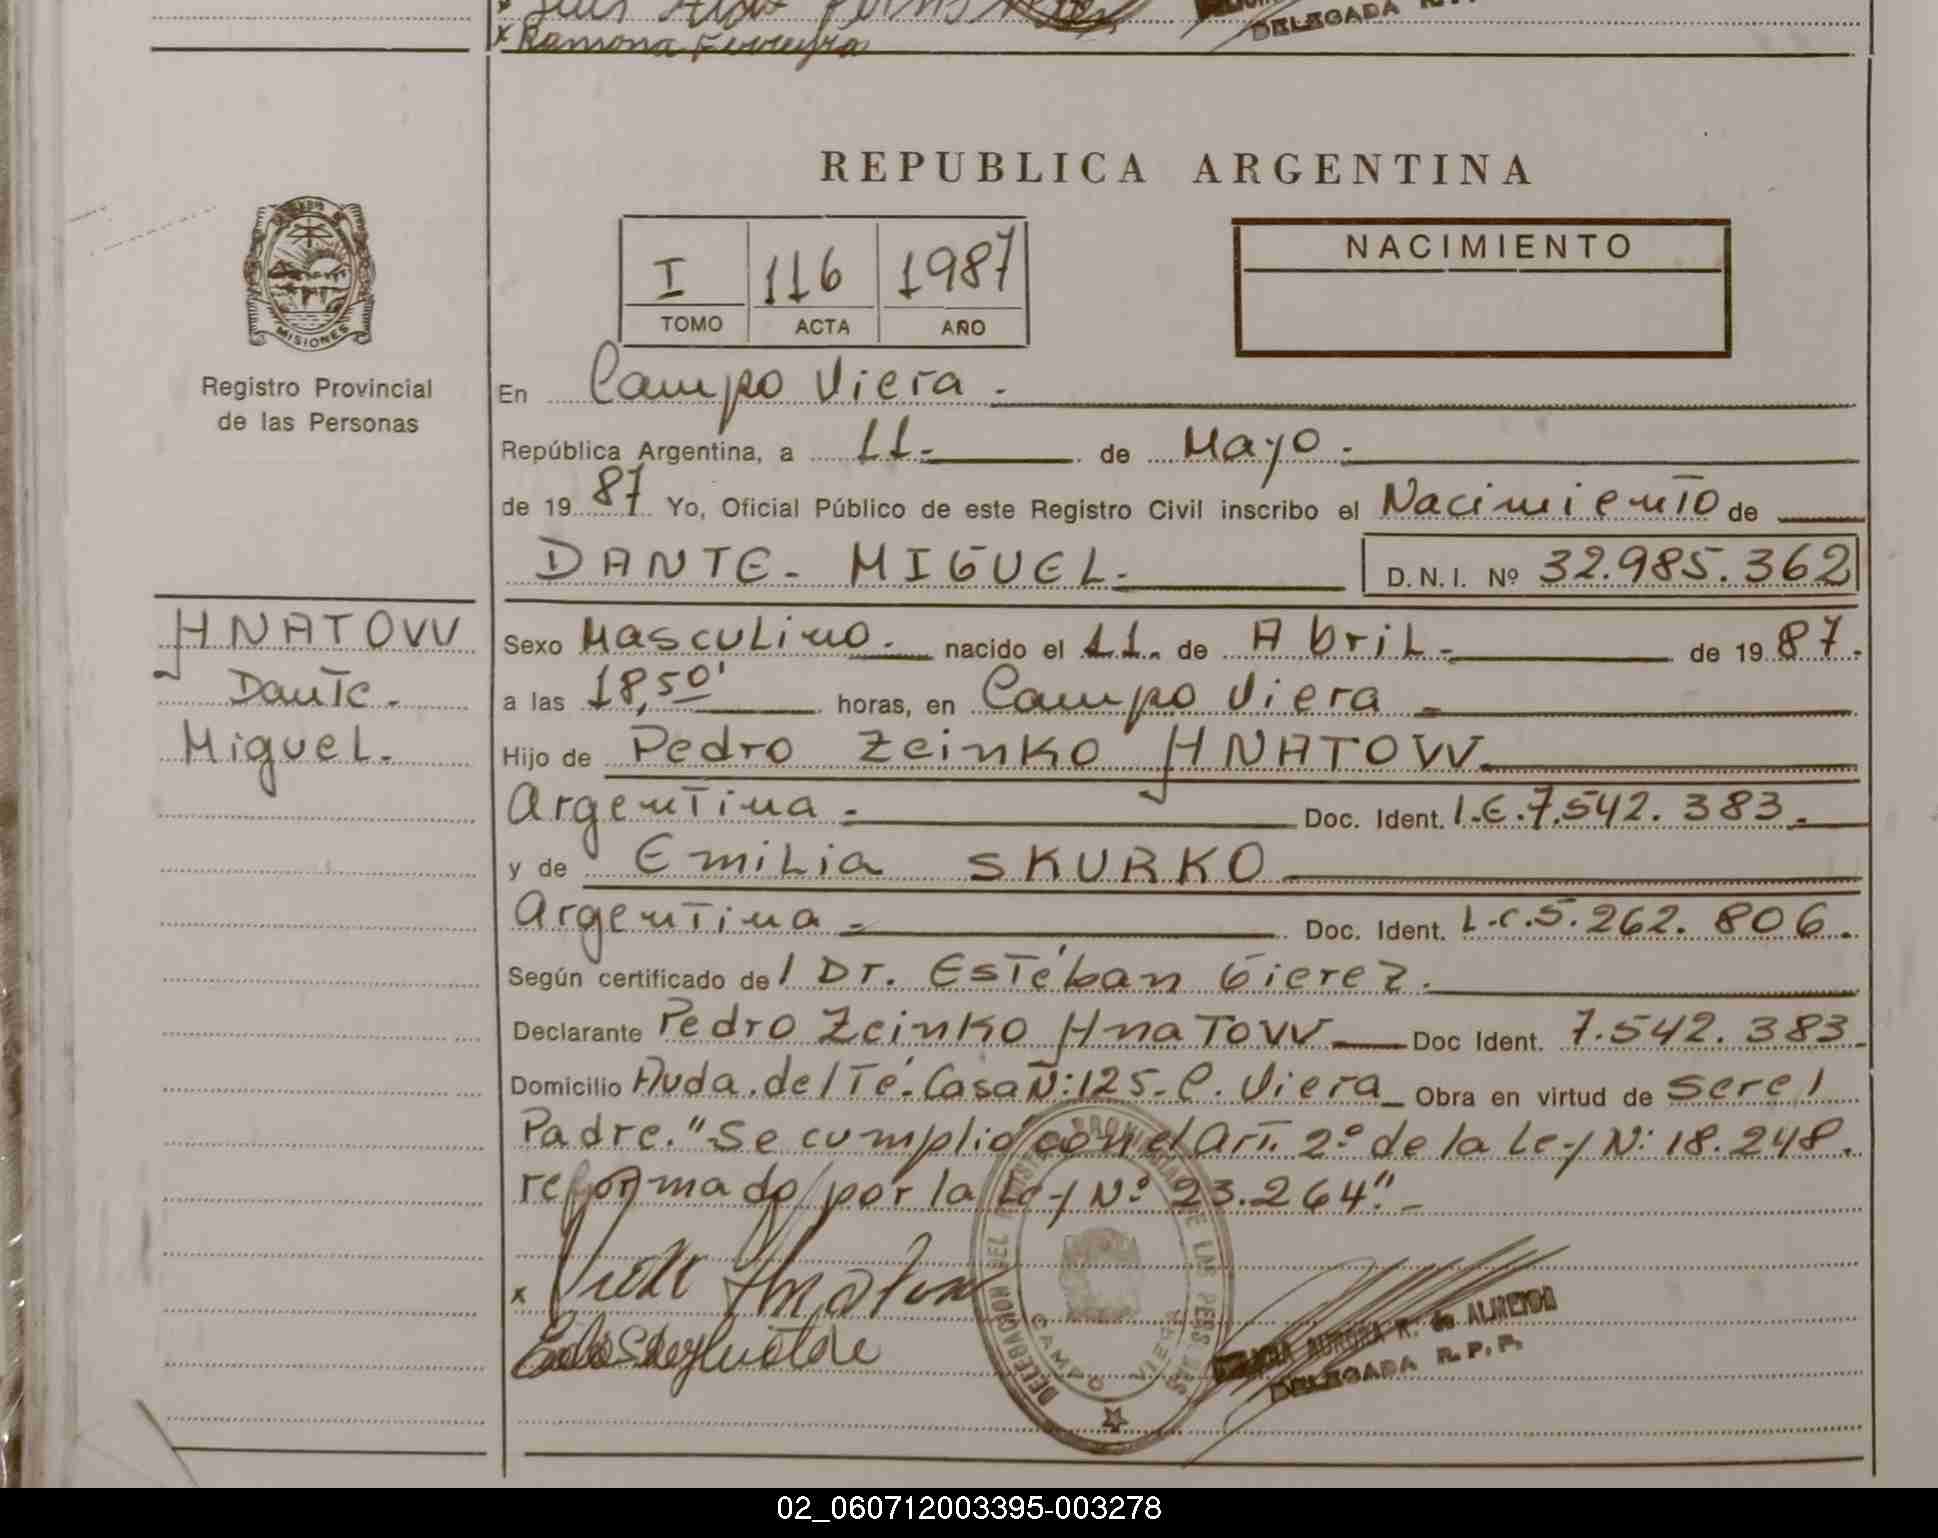 Ramona Ferreyra
DELEGADA R.P.P.
REPUBLICA ARGENTINA
I 116 1987
TOMO ACTA AÑO
NACIMIENTO
MISIONES
Registro Provincial
de las Personas
En Campo Viera.
República Argentina, a 11- de Mayo.
de 19 87 Yo, Oficial Público de este Registro Civil inscribo el Nacimiento de
DANTE- MIGUEL- D.N.I. Nº 32.985.362
HNATOW
Dante-
Miguel.
Sexo Masculino- nacido el 11- de Abril- de 19 87.
a las 18,50' horas, en Campo Viera
Hijo de Pedro Zeinko HNATOW
Argentina- Doc. Ident. L.E.7.542.383-
y de Emilia SKURKO
Argentina- Doc. Ident. L.C.5.262.806.
Según certificado del Dr. Estéban Gierez.
Declarante Pedro Zeinko Hnatow Doc Ident. 7.542.383
Domicilio Avda. del Té-Casa Nº:125-C. Viera Obra en virtud de ser el
Padre."Se cumplió con el Art. 2º de la Ley Nº 18.248.
reformado por la Ley Nº 23.264"-
x
DELEGACION DEL REGISTRO PROVINCIAL DE LAS PERS.
CAMPO VIERA
AURORA R. de ALMEIDA
DELEGADA R.P.P.
02_060712003395-003278